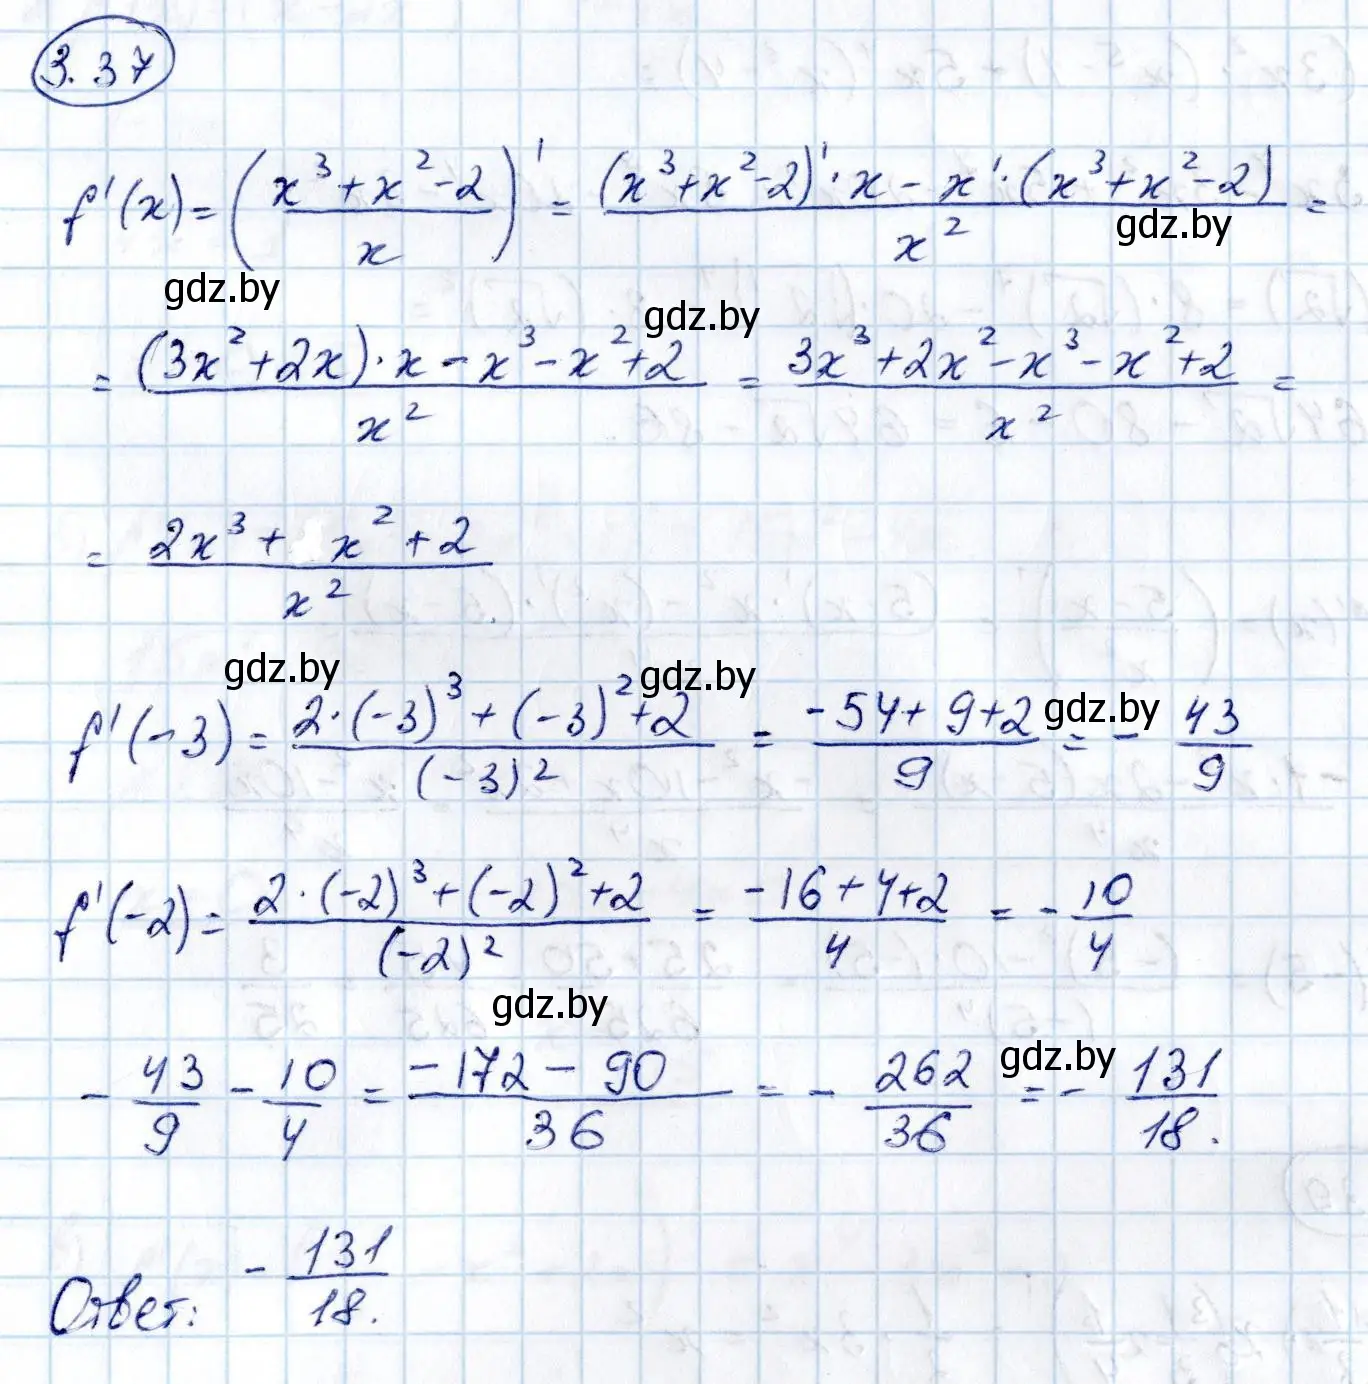 3.37
f'(x) = ((x³+x²-2)/x)' = ((x³+x²-2)'·x - x'·(x³+x²-2))/x² =
gdz.by
gdz.by
gdz.by
= ((3x²+2x)·x - x³ - x² + 2)/x² = (3x³+2x²-x³-x²+2)/x² =
= (2x³ + x² + 2)/x²
gdz.by
gdz.by
gdz.by
f'(-3) = (2·(-3)³+(-3)²+2)/(-3)² = (-54+9+2)/9 = - 43/9
f'(-2) = (2·(-2)³+(-2)²+2)/(-2)² = (-16+4+2)/4 = - 10/4
gdz.by
gdz.by
- 43/9 - 10/4 = (-172 - 90)/36 = - 262/36 = - 131/18.
Ответ: - 131/18.